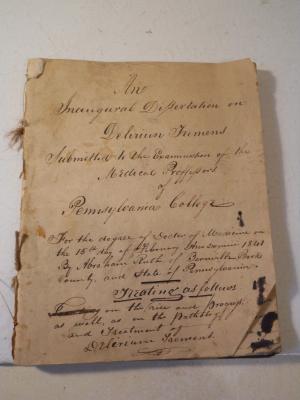 An
Inaugural Dissertation on
Delirium Tremens
Submitted to the Examination of the
Medical Professors
of
Pennsylvania College
For the degree of Doctor of Medicine on
the 15th day of February 1841
By Abraham of Bernville Berks
County, and State of Pennsylvania
Treating as follows
on the rise and progress
as well, as on the pathology
and Treatment of
Delirium Tremens.